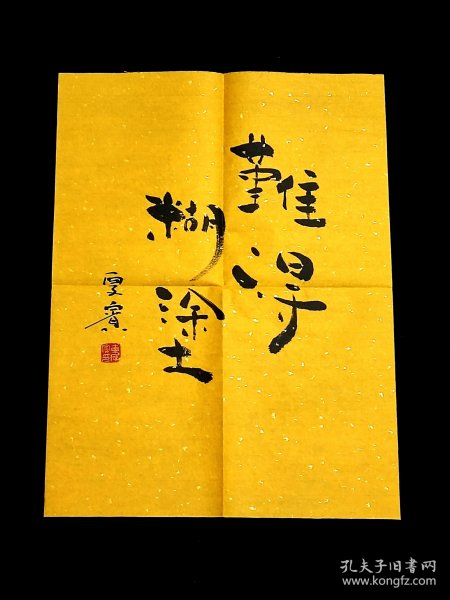 難得
糊塗
孔夫子旧书网
www.kongfz.com